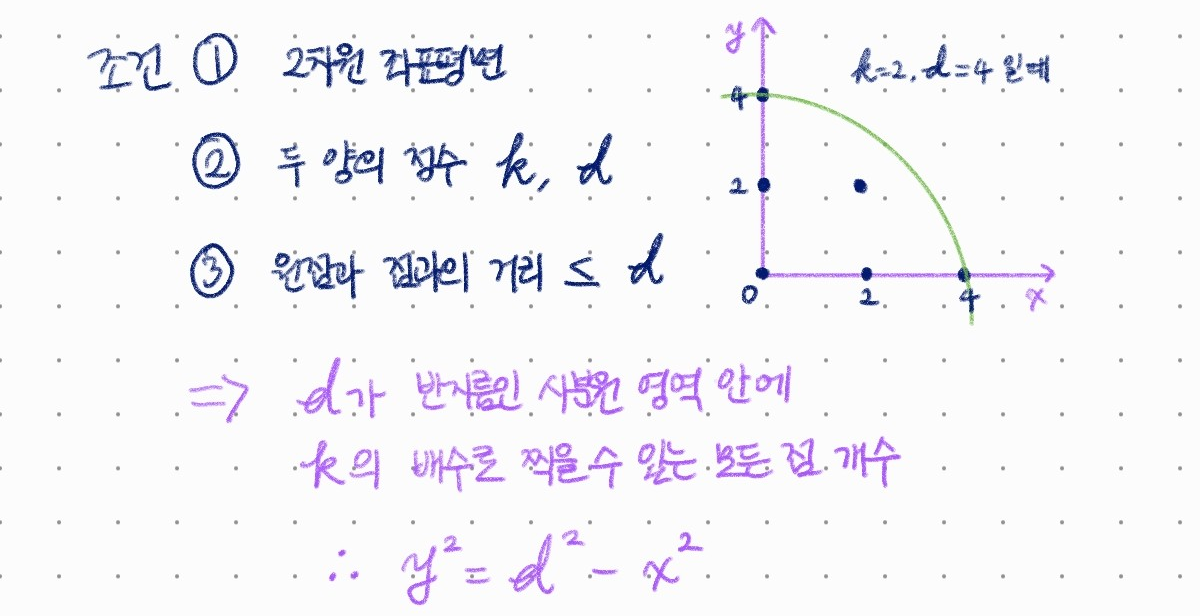 조건 ① 2차원 좌표평면
② 두 양의 정수 k, d
③ 원점과 점과의 거리 ≤ d
⇒ d가 반지름인 사분원 영역 안에
k의 배수로 찍을 수 있는 모든 점 개수
∴ y² = d² - x²
k=2, d=4 일 때
y
4
2
0 2 4 x